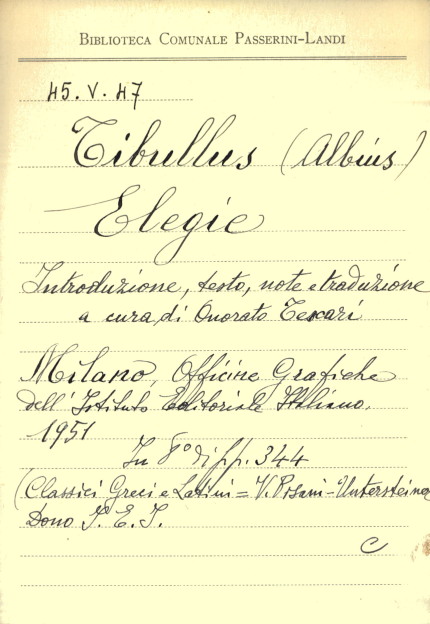 BIBLIOTECA COMUNALE PASSERINI-LANDI
45. V. 47
Tibullus (Albius)
Elegie
Introduzione, testo, note e traduzione
a cura di Onorato Tescari
Milano, Officine Grafiche
dell'Istituto Editoriale Italiano,
1951
In 8° di pp. 344
(Classici Greci e Latini = V. Pisani-Untersteiner
Dono I. E. I.
C